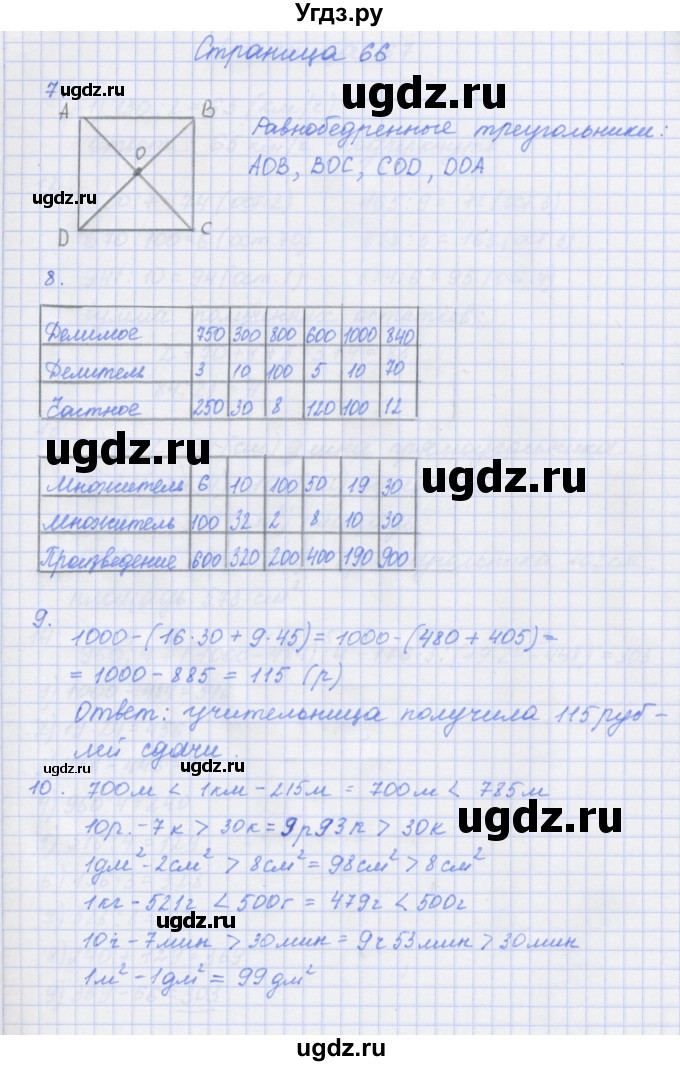 Угдз.ру
Страница 66
7
ugdz.ru
A B
ugdz.ru
Равнобедренные треугольники:
O
AOB, BOC, COD, DOA
ugdz.ru
D C
8.
Делимое 750 300 800 600 1000 840
Делитель 3 10 100 5 10 70
Частное 250 30 8 120 100 12
ugdz.ru
ugdz.ru
Множитель 6 10 100 50 19 30
Множитель 100 32 2 8 10 30
Произведение 600 320 200 400 190 900
9.
1000-(16·30+9·45)=1000-(480+405)=
=1000-885=115 (р)
Ответ: учительница получила 115 руб-
лей сдачи.
ugdz.ru
ugdz.ru
10. 700м < 1км-215м = 700м < 785м
ugdz.ru
10р.-7к > 30к = 9р93к > 30к
1дм²-2см² > 8см² = 98см² > 8см²
1кг-521г < 500г = 479г < 500г
ugdz.ru
10ч-7мин > 30мин = 9ч53мин > 30мин
1м²-1дм² = 99дм²
ugdz.ru